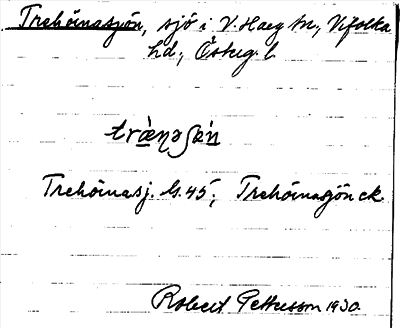 Trehörnasjön, sjö i V. Harg sn, Vifolka
hd, Östug. l.
Trehörnasj. G. 45; Trehörnasjön ek.
Robert Pettersson 1930.